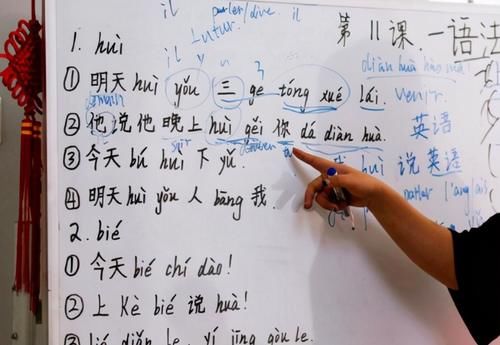 il parler/dire il
futur.
第 11 课 一 语法
1. huì
il y
diàn huà
① 明天 huì yǒu 三 ge tóng xué lái. venir.
② 他说他晚上 huì gěi 你 dǎ diàn huà. 英语
soir
③ 今天 bú huì 下 yǔ. huì 说 英语
parler l'anglais
④ 明天 huì yǒu 人 bāng 我.
2. bié
① 今天 bié chí dào!
② 上 Kè bié 说 huà!
③ bié diǎn le, yǐ jīng gòu le.